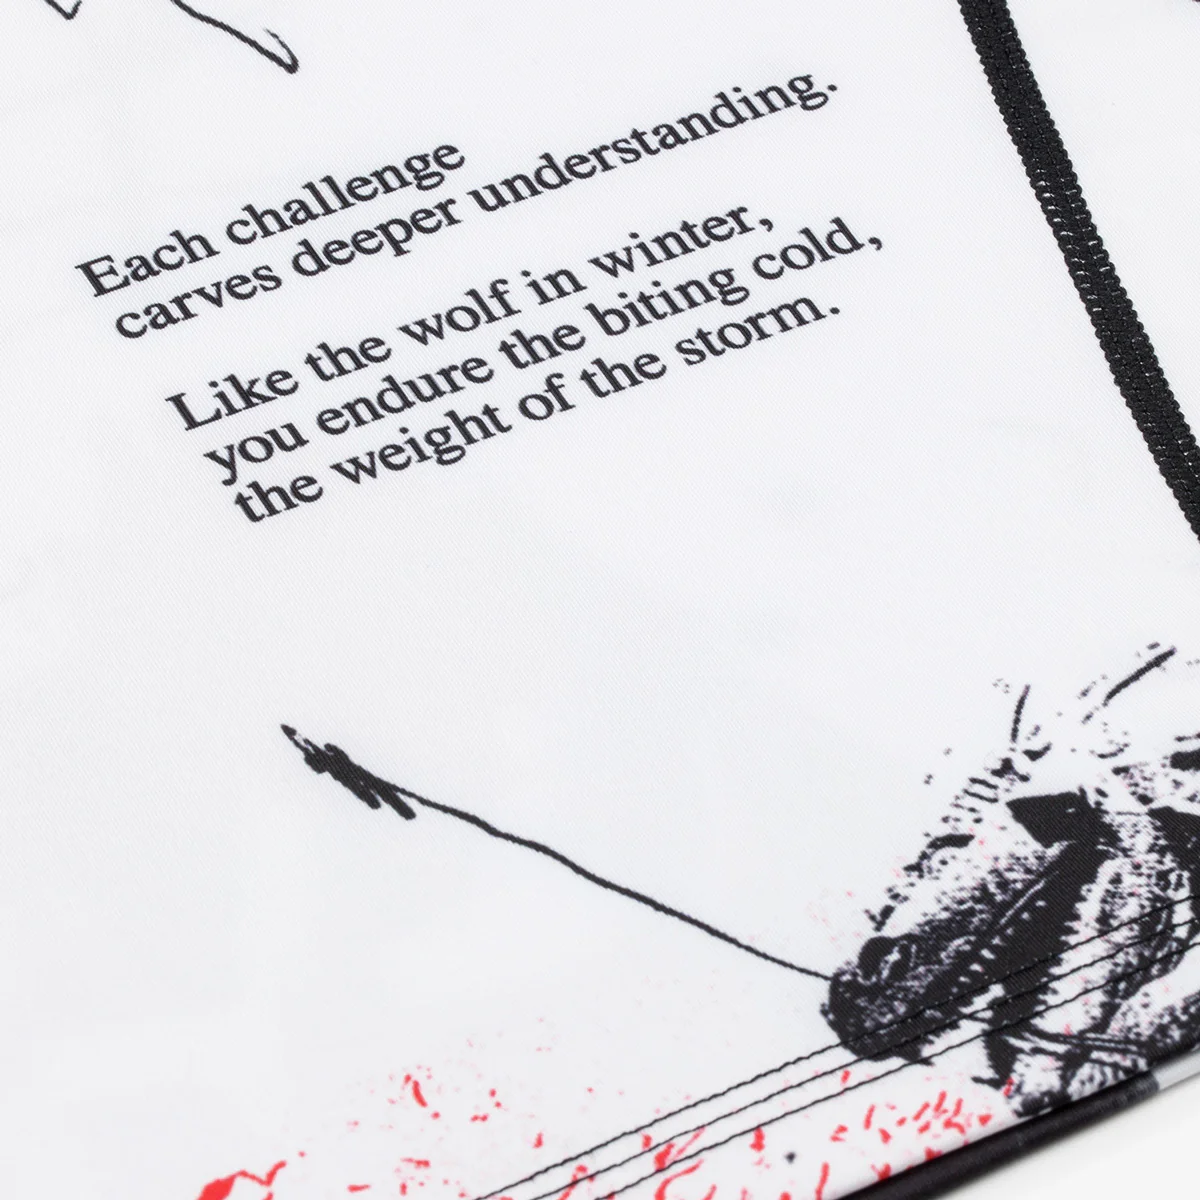 Each challenge
carves deeper understanding.
Like the wolf in winter,
you endure the biting cold,
the weight of the storm.